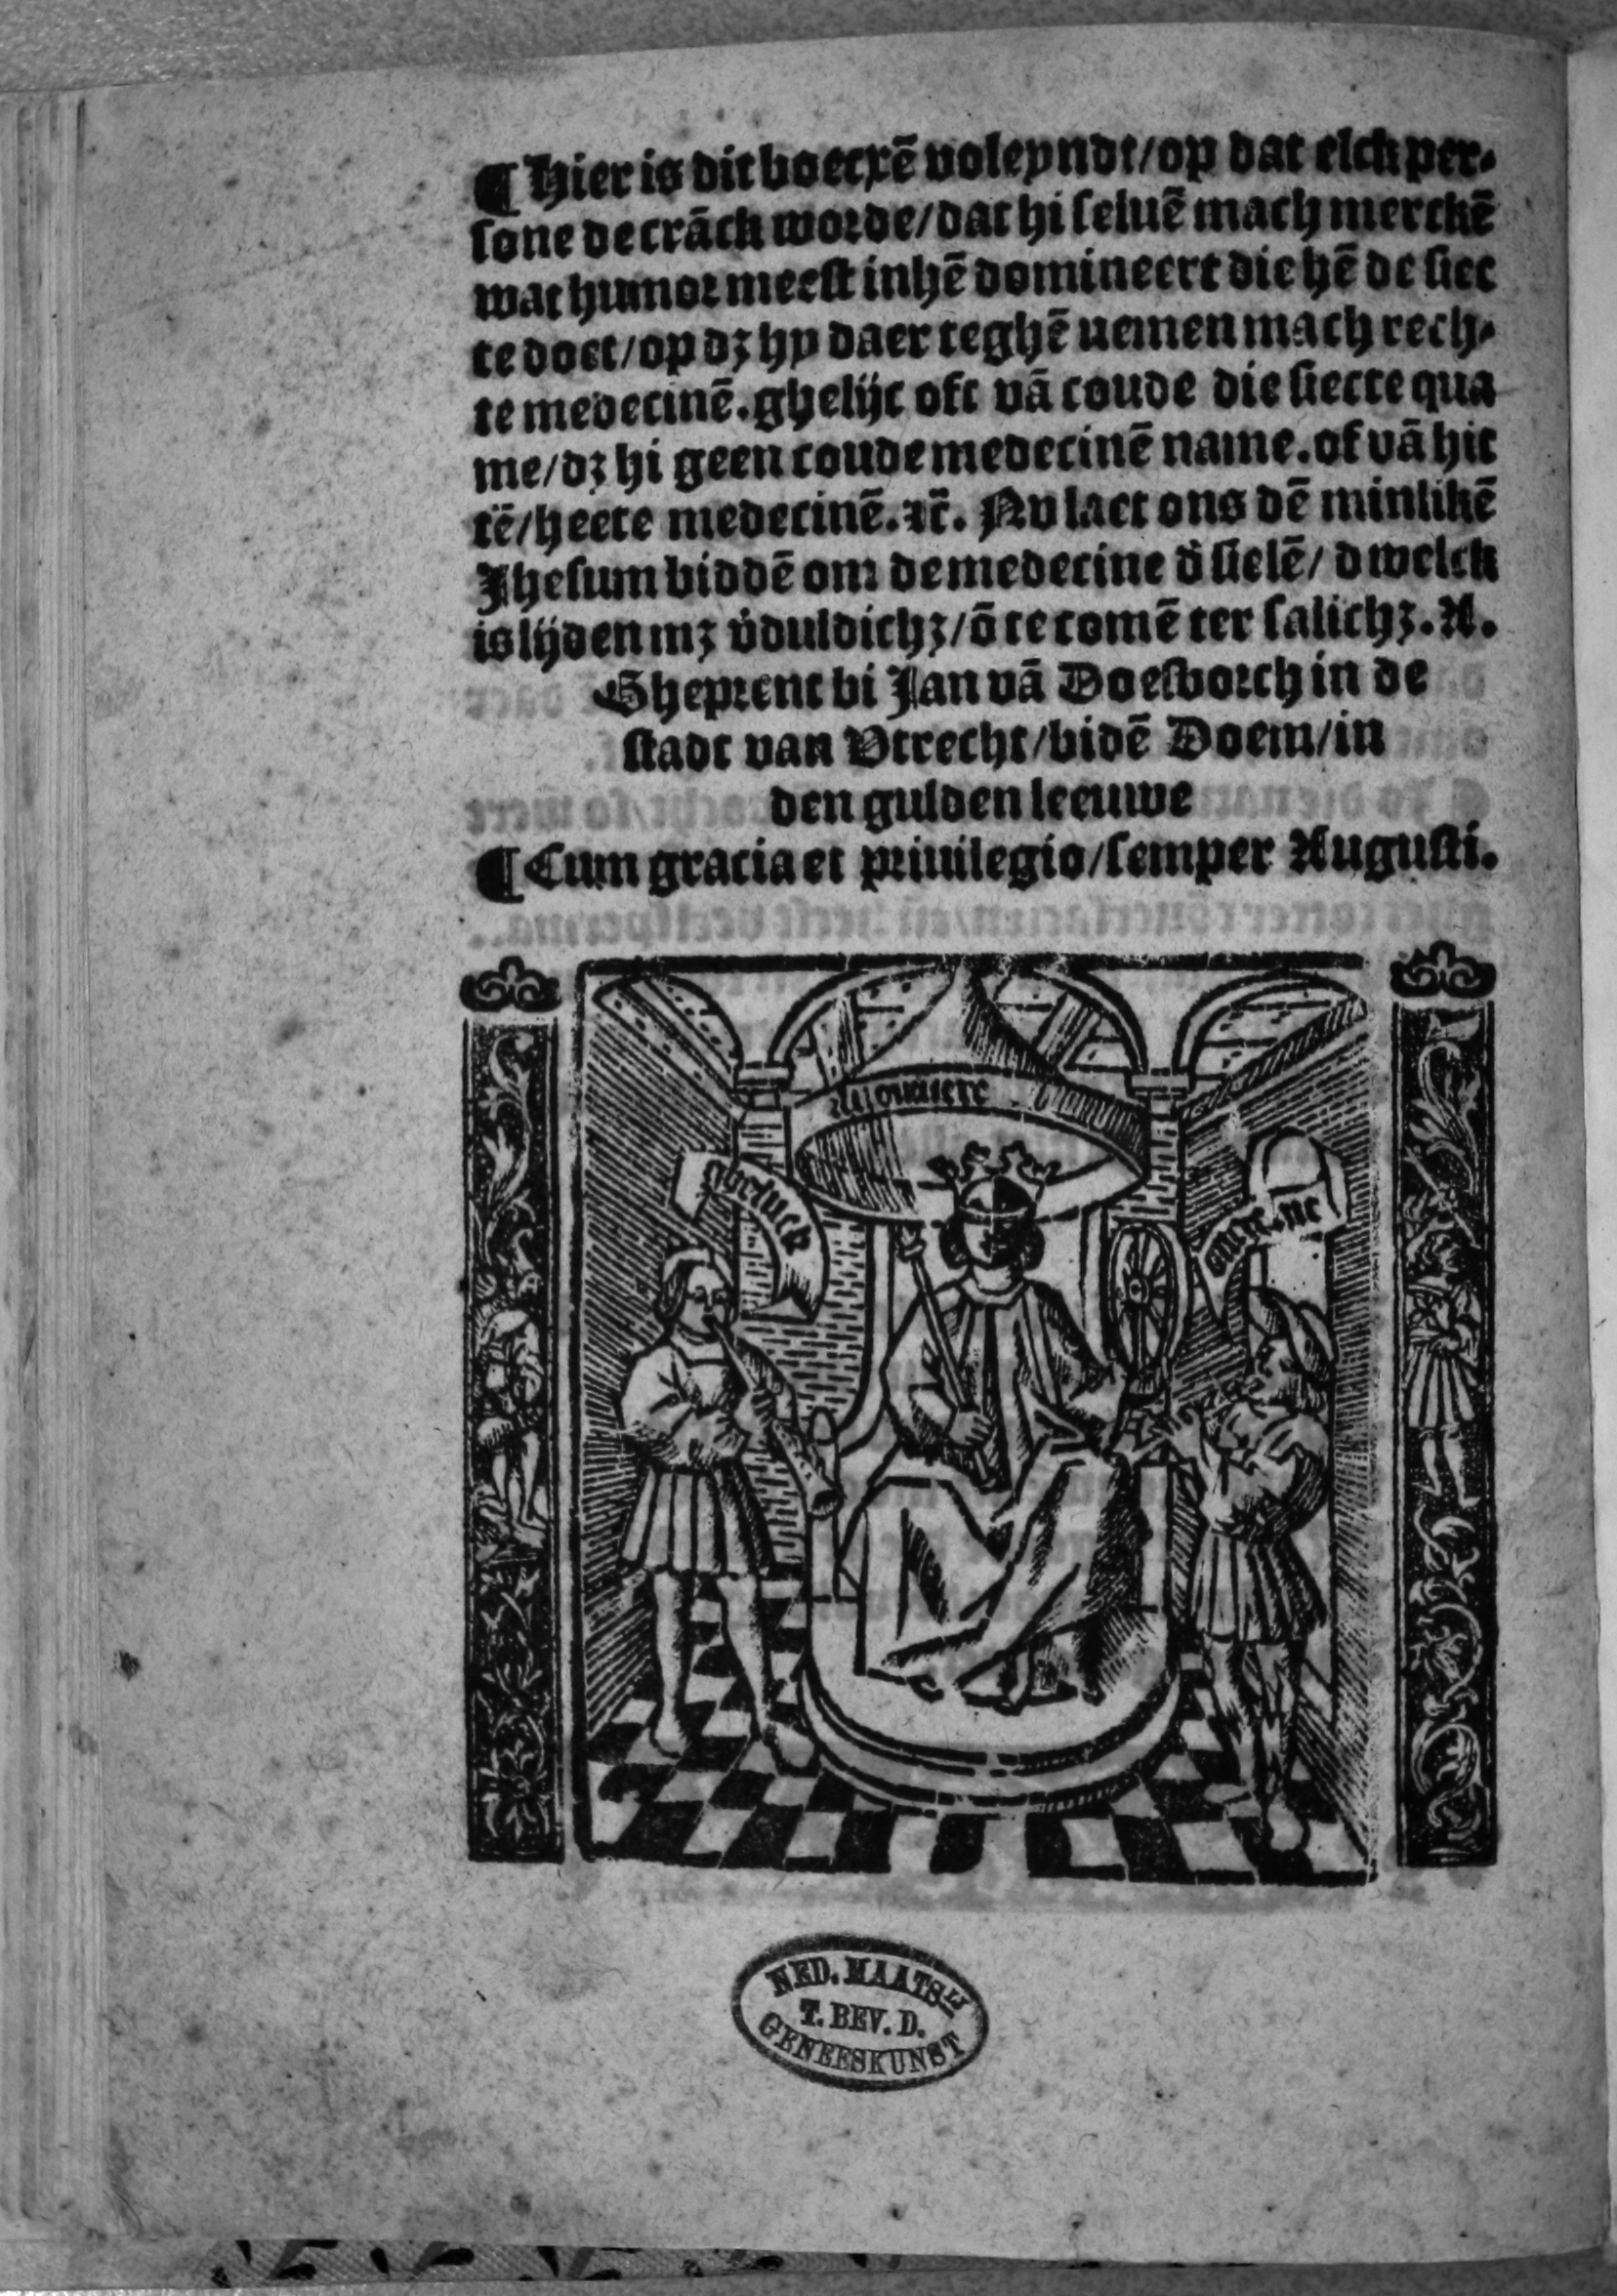 ¶ Hier is dit boecxē voleyndt/op dat elck per-
sone de crāck worde/dat hi seluē mach merckē
wat humor meest in hē domineert die hē de siec
te doet/op dz hy daer teghē nemen mach rech-
te medecinē. ghelijc oft vā coude die siecte qua
me/dz hi geen coude medecinē name. of vā hit
tē/heete medecinē. ⁊c̄. Nu laet ons dē minlikē
Jhesum biddē om de medecine d̕ sielē/ dwelck
is lijden mz v̕duldichz/ō te comē ter salichz. A.
Gheprent bi Jan vā Doesborch in de
stadt van Vtrecht/bidē Doem/in
den gulden leeuwe
¶ Cum gracia et priuilegio/semper Augusti.
Auontuere
NED. MAATSIJ
T. BEV. D.
GENEESKUNST